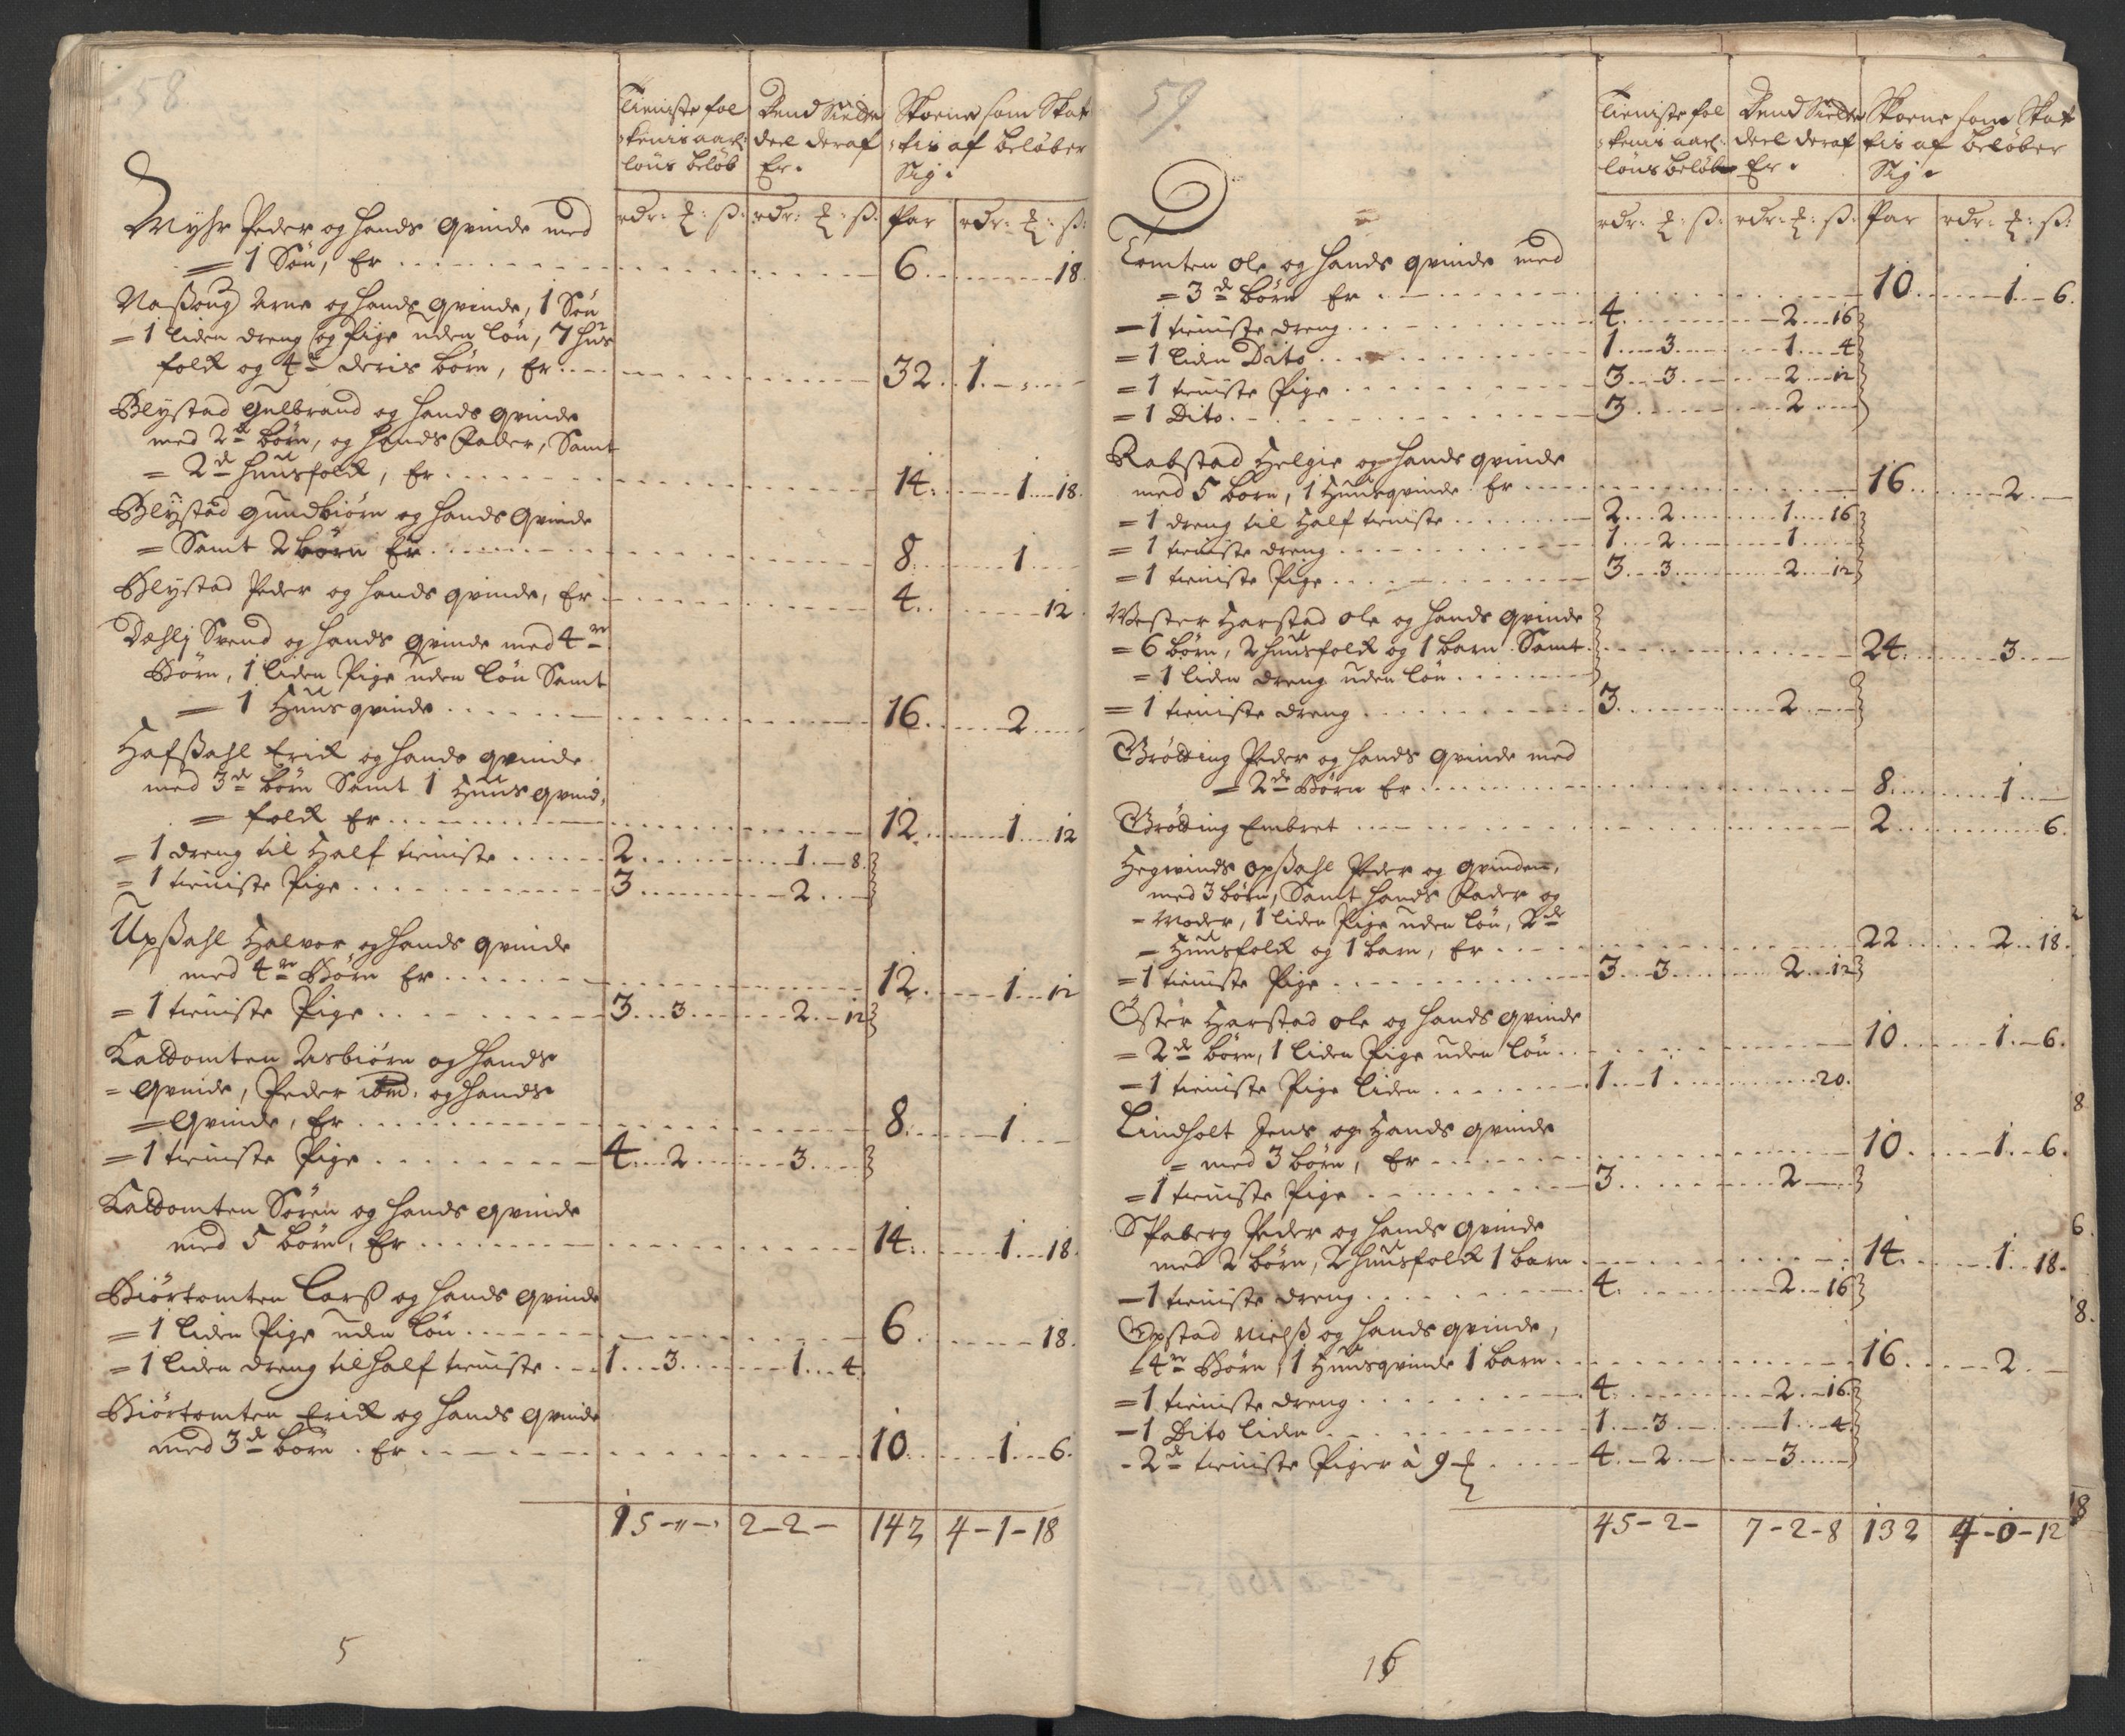 58.
Tieniste fol
kenis aarl:
löns belöb
Dend Siette
deel deraf
Er.
Skoene som Skat
tis af belöber
Sig.
rdr: ℥: ß: rdr: ℥: ß: Par rdr: ℥: ß:
Myhr Peder og hands qvinde med
= 1 Sön, Er . . . 6 . . . 18.
Arne og hands qvinde, 1 Sön
= 1 liden dreng og Pige uden lön, 7 huus
folck og 4re deris börn, Er . . . 32 . . 1 . - . . -
Blystad Gulbrand og hands qvinde
med 2de börn, og hands Fader, Samt
= 2de huusfolck, Er . . . 14 . . . 1 . . 18.
Blystad Gundbiörn og hands Qvinde
= Samt 2 börn Er . . . 8 . . . 1 . . .
Blystad Peder og hands qvinde, Er . . . 4 . . . 12.
Dæhlj Svend og hands qvinde med 4re
Börn, 1 liden Pige uden lön Samt
= 1 Huusqvinde . . . 16 . . . 2 . . .
Hafßahl Erick og hands qvinde
med 3de börn Samt 1 Huus qvind,
= folck Er . . . 12 . . . 1 . . 12
= 1 dreng til Half tieniste . . . 2 . . . 1 . . 8.
= 1 tieniste Pige . . . 3 . . . 2 . . .
Upßahl Halvor og hands qvinde
med 4re Börn Er . . . 12 . . . 1 . . 12
= 1 tieniste Pige . . . 3 . . 3 . . . 2 . . 12
Kaldomten Asbiörn og hands
= Qvinde, Peder ibid. og hands
= Qvinde, Er . . . 8 . . . 1 . . .
= 1 tieniste Pige . . . 4 . . 2 . . . 3 . . .
Kaldomten Sören og hands qvinde
med 5 börn, Er . . . 14 . . . 1 . . 18.
Biörtomten Larß og hands qvinde
= 1 liden Pige uden lön . . . 6 . . . 18.
= 1 liden dreng til half tieniste . . . 1 . . 3 . . . 1 . . 4.
Biörtomten Erick og hands qvinde
med 3de börn . Er . . . 10 . . . 1 . . 6.
15 - " - 2 - 2 - 142 4 - 1 - 18
5
59.
Tieniste fol
kenis aarl:
löns belöb
Dend Siette
deel deraf
Er.
Skoene som Skat
tis af belöber
Sig.
rdr: ℥: ß: rdr: ℥: ß: Par rdr: ℥: ß:
Tomten Ole og hands qvinde med
= 3de börn Er . . . 10 . . . 1 . . 6.
= 1 tieniste dreng . . . 4 . . . 2 . . 16
= 1 liden Dito . . . 1 . . 3 . . . 1 . . 4
= 1 tieniste Pige . . . 3 . . 3 . . . 2 . . 12
= 1 Dito . . . 3 . . . 2 . . .
Rabstad Helgie og hands qvinde
med 5 börn, 1 Huusqvinde Er . . . 16 . . . 2 . . .
= 1 dreng til Half tieniste . . . 2 . . 2 . . . 1 . . 16
= 1 tieniste dreng . . . 1 . . 2 . . . 1 . . .
= 1 tieniste Pige . . . 3 . . 3 . . . 2 . . 12
Vester Harstad Ole og hands qvinde
= 6 börn, 2 huusfolck og 1 barn Samt . . . 24 . . . 3 . . .
= 1 liden dreng uden lön . . .
= 1 tieniste dreng . . . 3 . . . 2 . . .
Grötting Peder og hands qvinde med
= 2de Börn Er . . . 8 . . . 1 . . .
Grötting Embret . . . 2 . . . 6.
Hegvinds Opßahl Peder og qvinden,
med 3 börn, Samt hands Fader og
= Moder, 1 liden Pige uden lön, 2de
= Huusfolck og 1 barn, Er . . . 22 . . . 2 . . 18.
= 1 tieniste Pige . . . 3 . . 3 . . . 2 . . 12
Öster Harstad Ole og hands qvinde
= 2de börn, 1 liden Pige uden lön . . . 10 . . . 1 . . 6.
= 1 tieniste Pige liden . . . 1 . . 1 . . . 20.
Lindholt Jens og Hands qvinde
= med 3 börn, Er . . . 10 . . . 1 . . 6.
= 1 tieniste Pige . . . 3 . . . 2 . . .
Spaberg Peder og hands qvinde
med 2 börn, 2 huusfolck 1 barn . . . 14 . . . 1 . . 18.
= 1 tieniste dreng . . . 4 . . . 2 . . 16
Opstad Nielß og hands qvinde,
4re Börn, 1 Huusqvinde 1 barn . . . 16 . . . 2 . . .
= 1 tieniste dreng . . . 4 . . . 2 . . 16.
= 1 Dito liden . . . 1 . . 3 . . . 1 . . 4.
- 2de tieniste Piger à 9 ℥ . . . 4 . . 2 . . . 3 . . .
45 - 2 - 7 - 2 - 8 132 4 - 0 - 12
16